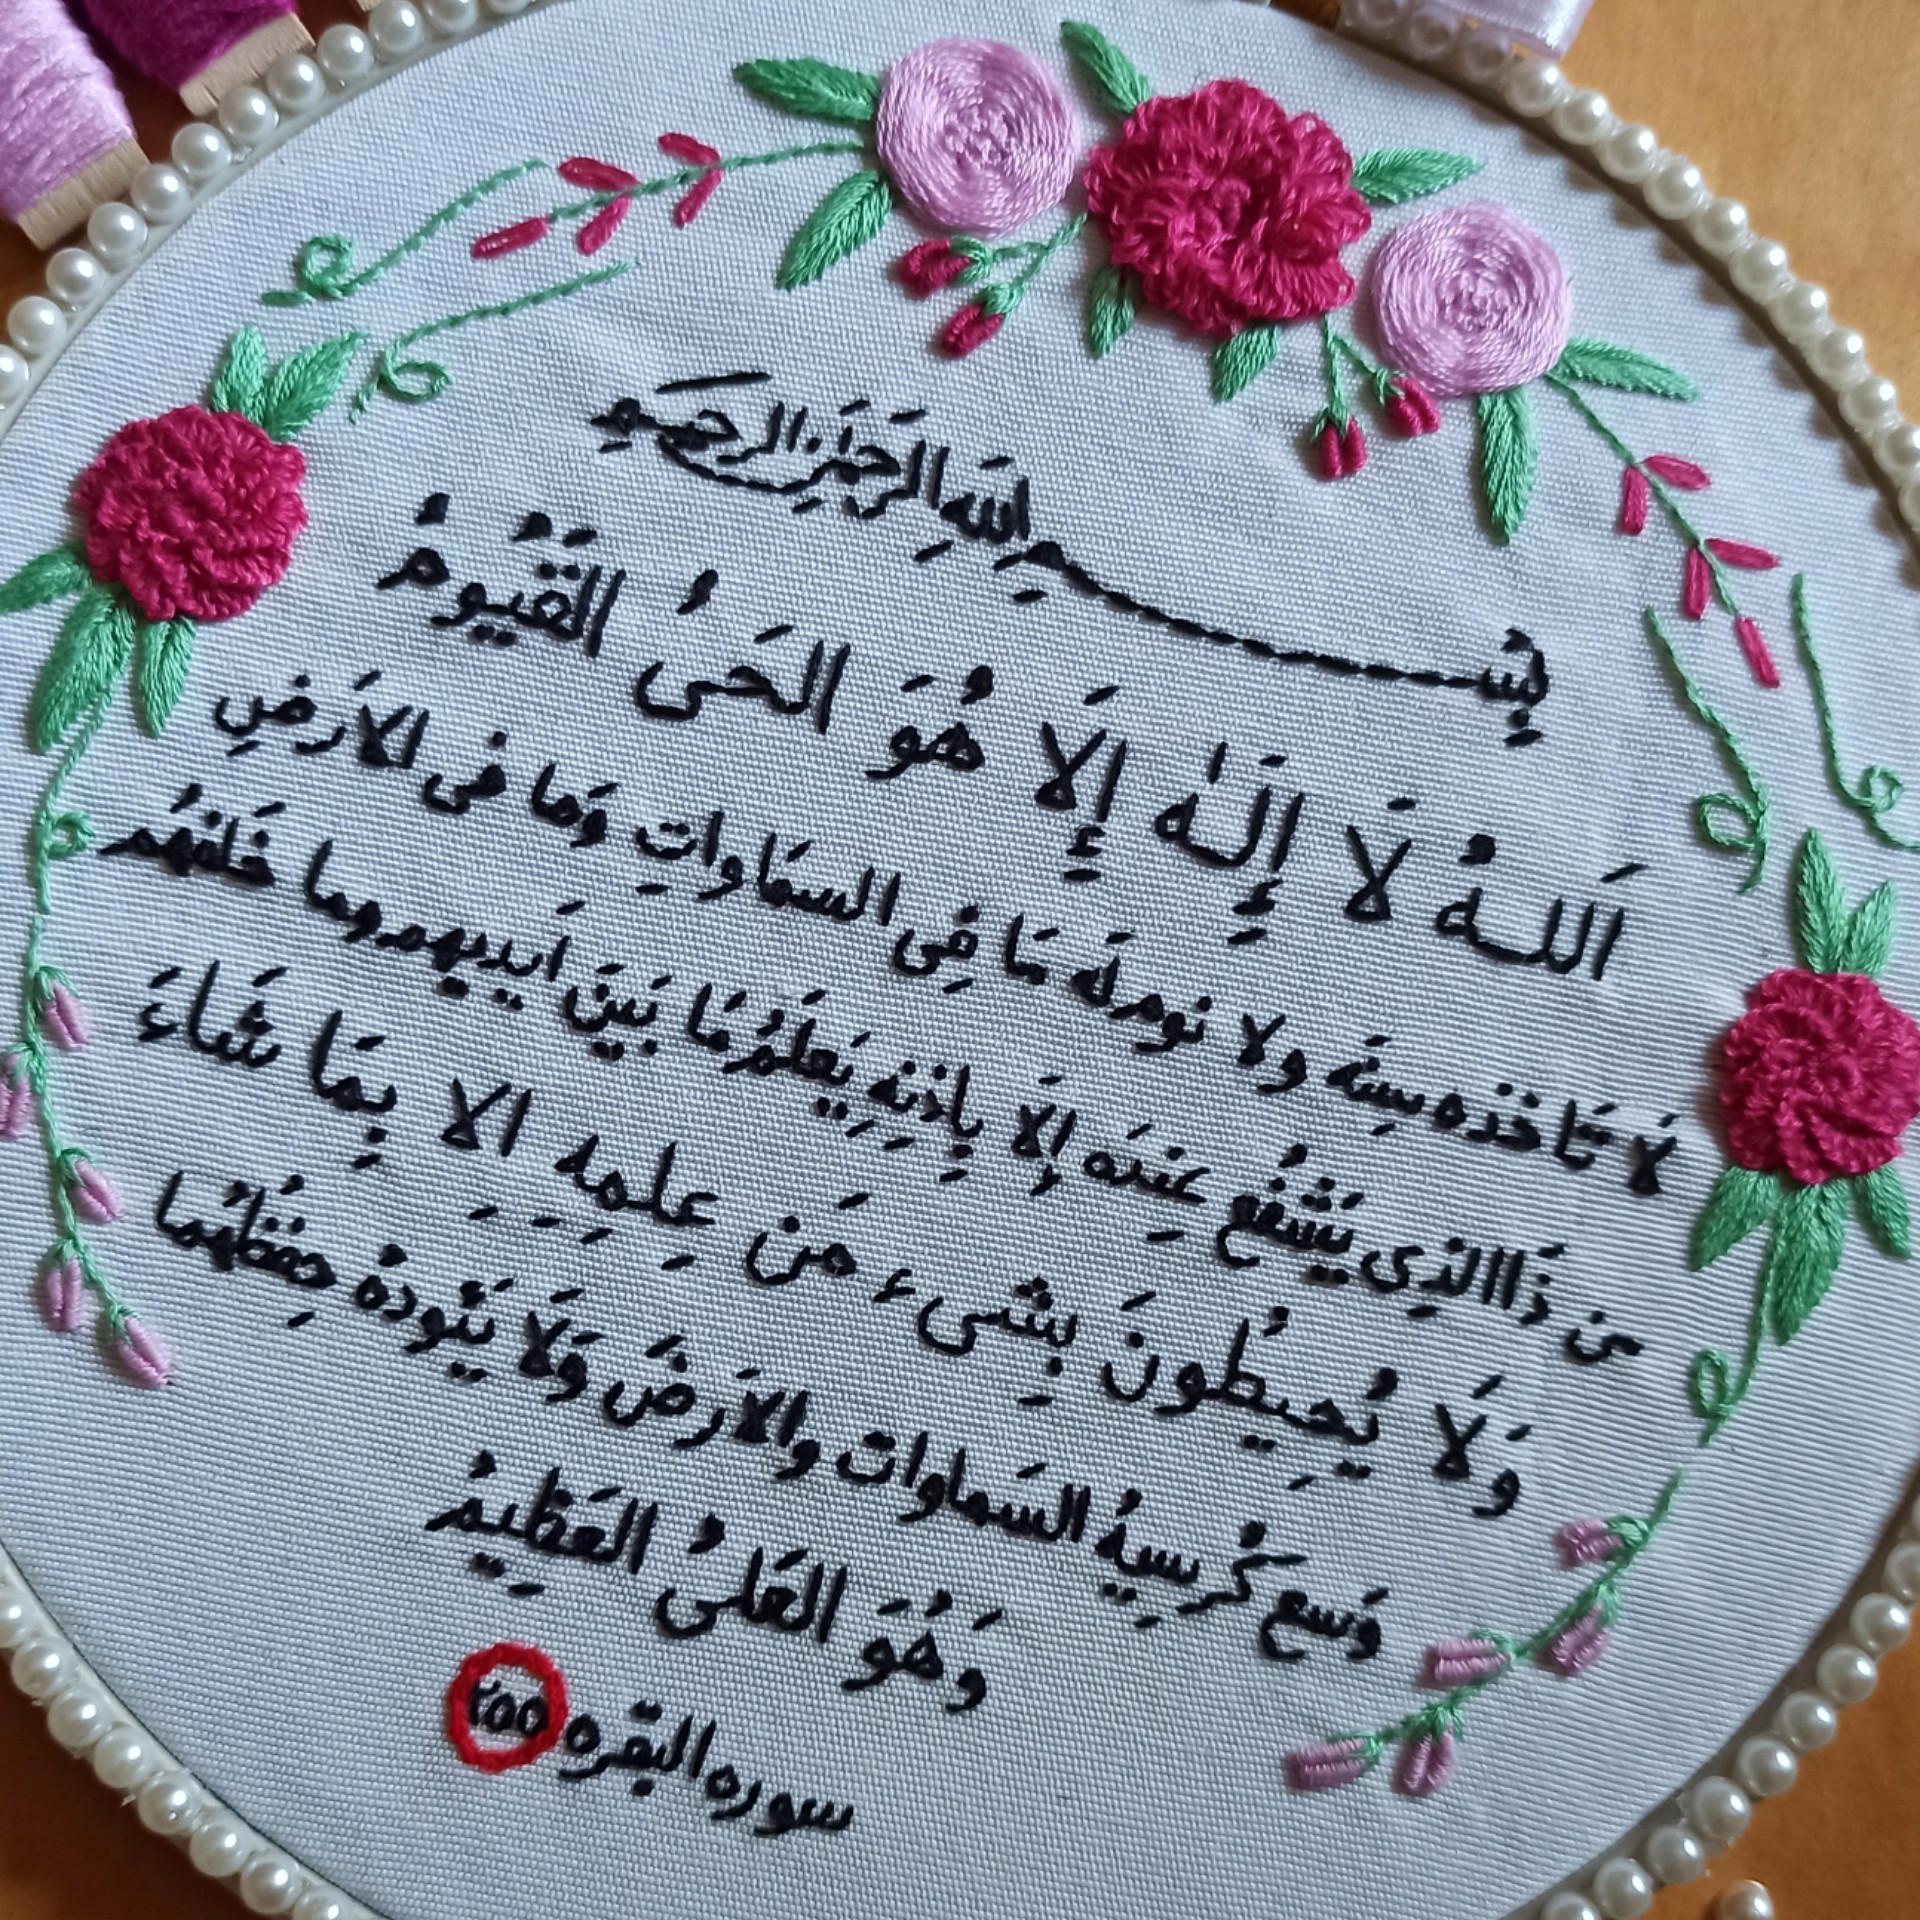 بِسْمِ اللهِ الرَّحْمَنِ الرَّحِيمِ
اَللهُ لَا إِلَٰهَ إِلَّا هُوَ الحَىُّ القَيُّومُ
لَا تَاخذه سِنَه ولا نوم لَه مَا فِى السمَاواتِ وَما فى الارَضِ
من ذَا الذِى يَشْفَع عِندَه إلَا بِاِذنِهِ يَعلَمُ مَا بَينَ اَيديهِم وما خَلفهُم
وَلَا يُحِيْطُونَ بِشىء مَن عِلمِهِ الا بِمَا شَاءَ
وَسع كُرسِيهُ السَماوات والارَضَ وَلَا يَئودهُ حِفظُهُما
وَهُوَ العَلىُ العَظِيمُ
سوره البقره ٢٥٥